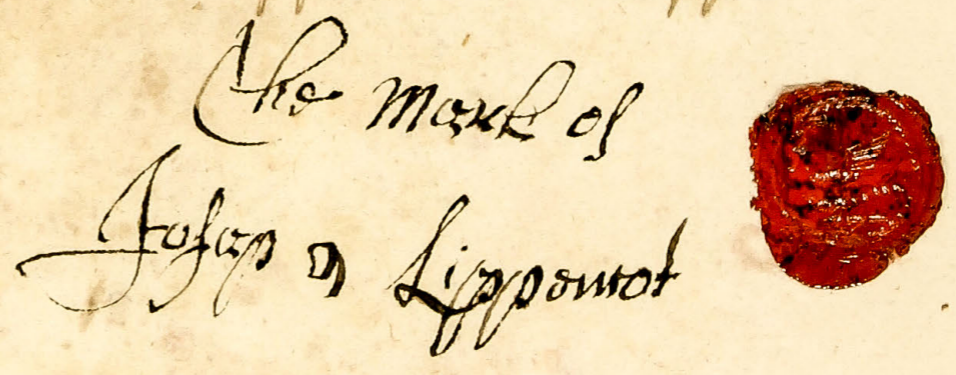 The mark of
Josap Lippencot